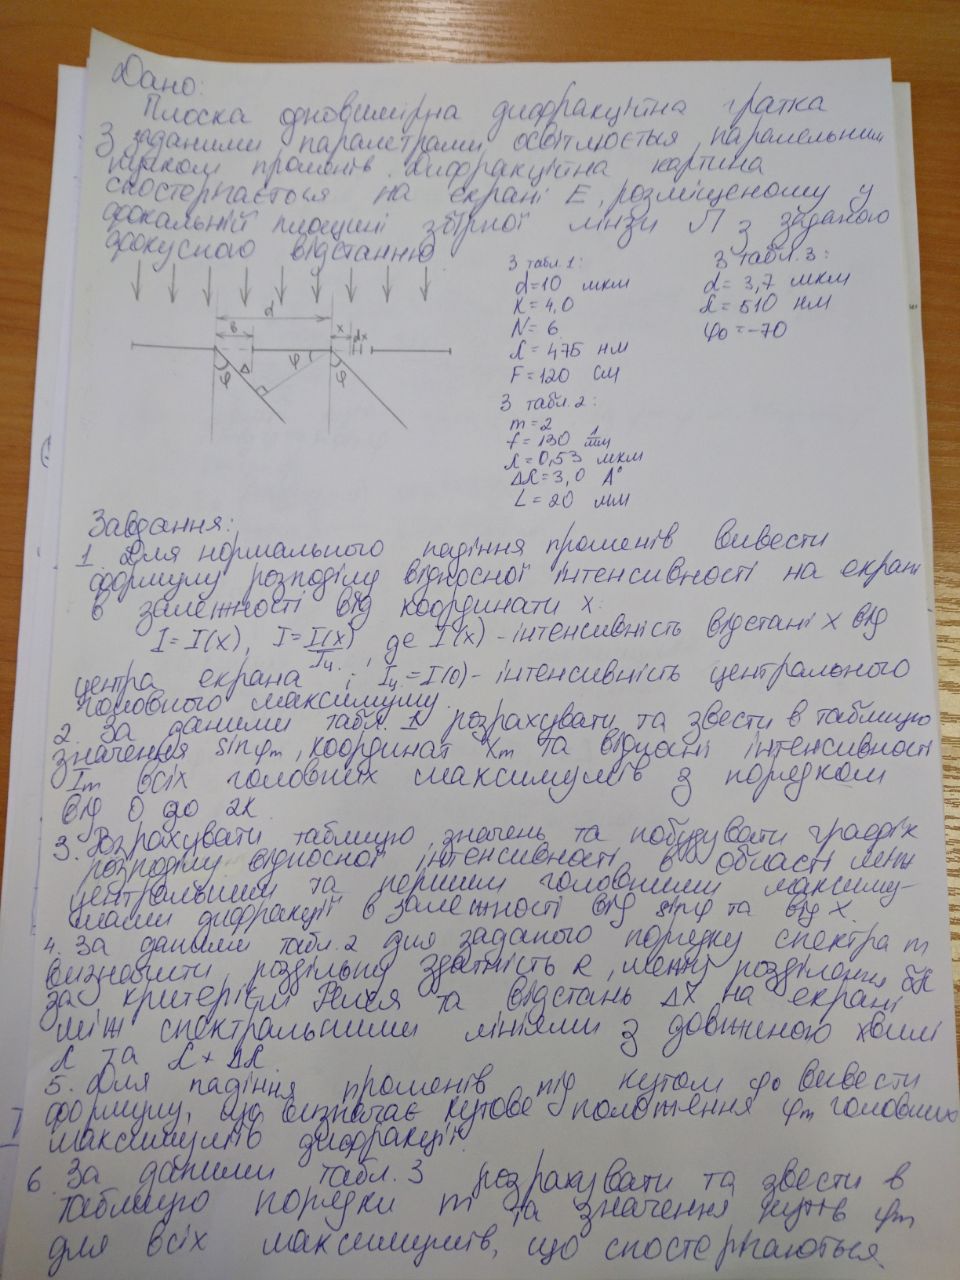 Дано:
Плоска одновимірна дифракційна гратка
З заданими параметрами освітлюється паралельним
пучком променів. Дифракційна картина
спостерігається на екрані Е, розміщеному у
фокальній площині збірної лінзи Л з заданою
фокусною відстанню
d
в
x
dx
φ
Δ
φ
φ
З табл. 1:
d=10 мкм
K=4,0
N=6
λ=475 нм
F=120 см
З табл. 2:
m=2
f=130 1/мм
λ=0,53 мкм
Δλ=3,0 A°
L=20 мм
З табл. 3:
d=3,7 мкм
λ=510 нм
φ0=-70
Завдання:
1. Для нормального падіння променів вивести
формулу розподілу відносної інтенсивності на екрані
в залежності від координати x:
I=I(x), I=I(x)/Iц, де I(x)-інтенсивність відстані x від
центра екрана ; Iц=I(0)-інтенсивність центрального
головного максимуму.
2. За даними табл. 1 розрахувати та звести в таблицю
значення sinφm, координат xm та відносні інтенсивності
Im всіх головних максимумів з порядком
від 0 до 2K.
3. Розрахувати таблицю значень та побудувати графік
розподілу відносної інтенсивності в області між
центральним та першим головними максиму-
мами дифракції в залежності від sinφ та від x.
4. За даними табл. 2 для заданого порядку спектра m
визначити роздільну здатність R, межу розділення δλ
за критерієм Релея та відстань Δx на екрані
між спектральними лініями з довжиною хвилі
λ та λ+Δλ.
5. Для падіння променів під кутом φ0 вивести
формулу, що визначає кутове положення φm головних
максимумів дифракції.
6 За даними табл. 3 розрахувати та звести в
таблицю порядки m та значення кутів φm
для всіх максимумів, що спостерігаються.